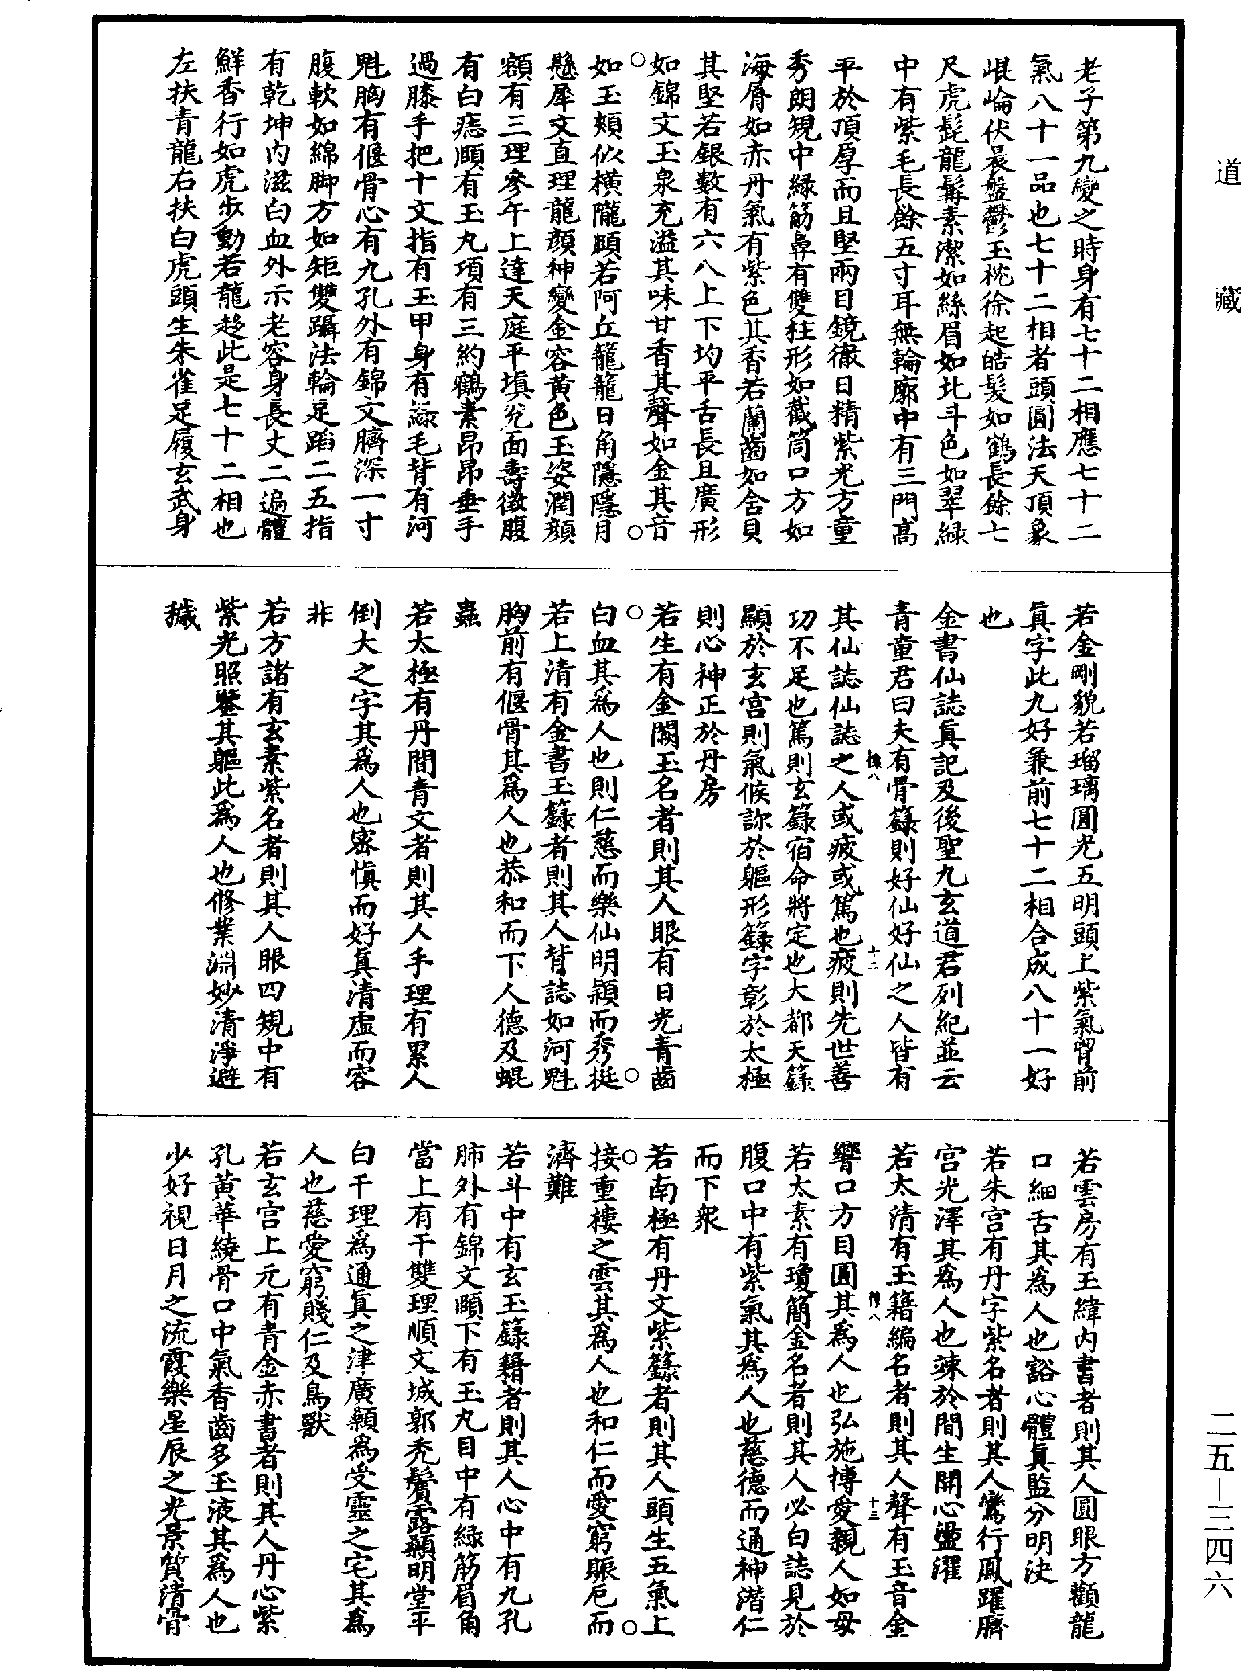 道藏
老子第九變之時身有七十二相應七十二
氣八十一品也七十二相者頭圓法天頂象
崐崘伏晨盤鬱玉枕徐起皓髪如鶴長餘七
尺虎髭龍髯素潔如絲眉如北斗色如翠緑
中有紫毛長餘五寸耳無輪廓中有三門高
平於頂厚而且堅兩目鏡徹日精紫光方童
秀朗規中緑筋鼻有雙柱形如截筒口方如
海脣如赤丹氣有紫色其香若蘭齒如含貝
其堅若銀數有六八上下均平舌長且廣形
如錦文玉泉充溢其味甘香其聲如金其音
如玉頰似横隴頤若阿丘籠籠日角隱隱月
懸犀文直理龍顔神變金容黄色玉姿潤顔
額有三理參午上達天庭平填兊面壽徵腹
有白痣頤有玉丸項有三約鶴素昂昂垂手
過膝手把十文指有玉甲身有緑毛背有河
魁胸有偃骨心有九孔外有錦文臍深一寸
腹軟如綿脚方如矩雙躡法輪足蹈二五指
有乾坤內滋白血外示老容身長丈二遍體
鮮香行如虎步動若龍趍此是七十二相也
左扶青龍右扶白虎頭生朱雀足履玄武身
若金剛貌若瑠璃圓光五明頭上紫氣胷前
眞字此九好兼前七十二相合成八十一好
也
金書仙誌眞記及後聖九玄道君列紀並云
青童君曰夫有骨籙則好仙好仙之人皆有
其仙誌仙誌之人或疲或篤也疲則先世善
功不足也篤則玄籙宿命將定也大都天籙
顯於玄宫則氣候諒於軀形籙字彰於太極
則心神正於丹房
若生有金闕玉名者則其人眼有日光青齒
白血其爲人也則仁慈而樂仙明穎而秀挺
若上清有金書玉籙者則其人背誌如河魁
胸前有偃骨其爲人也恭和而下人德及蜫
蟲
若太極有丹簡青文者則其人手理有累人
倒大之字其爲人也審愼而好眞清虛而容
非
若方諸有玄素紫名者則其人眼四規中有
紫光照鑒其軀此爲人也修業淵妙清淨避
穢
若雲房有玉緯內書者則其人圓眼方顴龍
口細舌其爲人也豁心體眞監分明決
若朱宫有丹字紫名者則其人鸞行鳳躍臍
宫光澤其爲人也竦於間生開心盪濯
若太清有玉籍編名者則其人聲有玉音金
響口方目圓其爲人也弘施博愛親人如母
若太素有瓊簡金名者則其人必白誌見於
腹口中有紫氣其爲人也慈德而通神潛仁
而下衆
若南極有丹文紫籙者則其人頭生五氣上
接重樓之雲其爲人也和仁而愛窮賑戹而
濟難
若斗中有玄玉籙籍者則其人心中有九孔
肺外有錦文頤下有玉丸目中有緑筋眉角
當上有千雙理順文城郭秃鬢露顙明堂平
白千理爲通眞之津廣顙爲受靈之宅其爲
人也慈愛窮賤仁及鳥獸
若玄宫上元有青金赤書者則其人丹心紫
孔黄華繞骨口中氣香齒多玉液其爲人也
少好視日月之流霞樂星辰之光景質清骨
二五－三四六